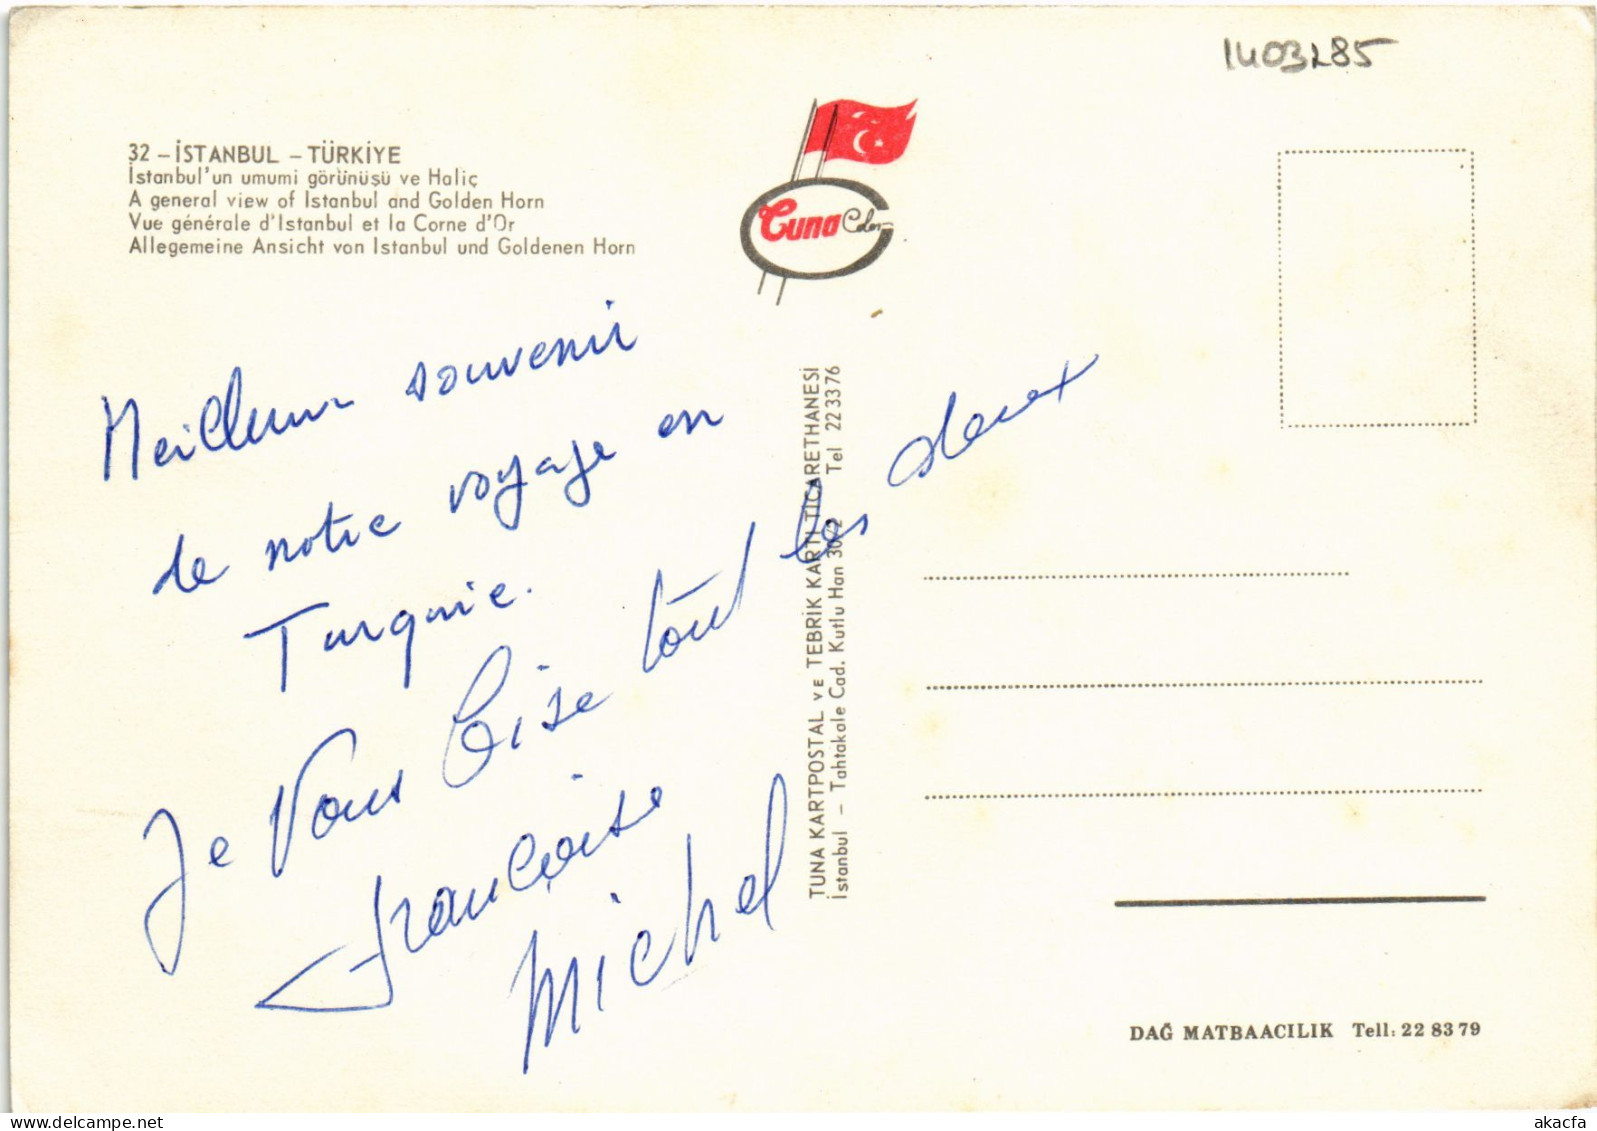 1403285
32 – İSTANBUL – TÜRKİYE
İstanbul'un umumi görünüşü ve Haliç
A general view of Istanbul and Golden Horn
Vue générale d'Istanbul et la Corne d'Or
Allegemeine Ansicht von Istanbul und Goldenen Horn
Tuna Color
Meilleur souvenir
de notre voyage en
Turquie.
Je vous bise tout les deux
Françoise
Michel
TUNA KARTPOSTAL VE TEBRİK KARTI TİCARETHANESİ
İstanbul – Tahtakale Cad. Kutlu Han 30/2 Tel 22 33 76
DAĞ MATBAACILIK Tell: 22 83 79
akacfa